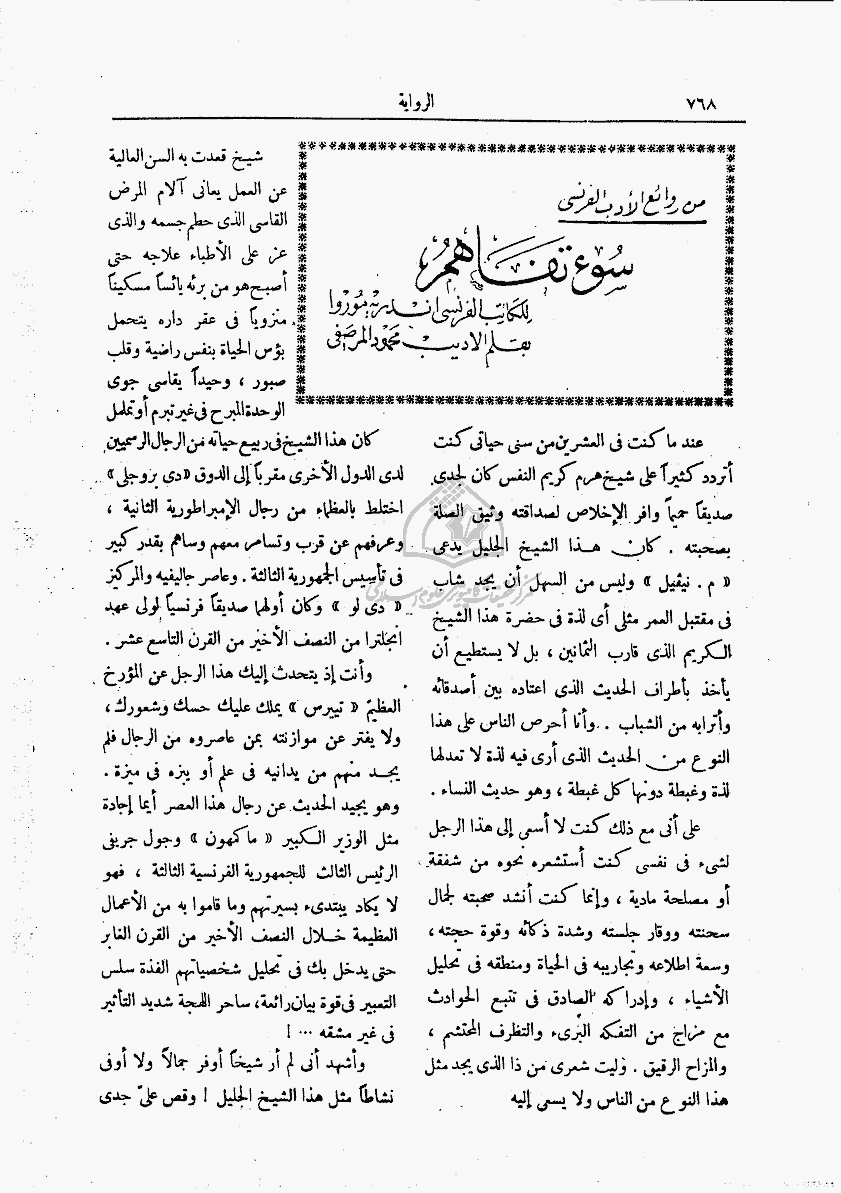 ٧٦٨
الرواية
من روائع الأدب الفرنسى
سوء تفاهم
للكاتب الفرنسى اندريه موروا
بقلم الأديب محمود المرصفى
عند ما كنت فى العشرين من سنى حياتى كنت
أتردد كثيراً على شيخ هرم كريم النفس كان لجدى
صديقاً حميماً وافر الإخلاص لصداقته وثيق الصلة
بصحبته . كان هذا الشيخ الجليل يدعى
« م . نيڤيل » وليس من السهل أن يجد شاب
فى مقتبل العمر مثلى أى لذة فى حضرة هذا الشيخ
الكريم الذى قارب الثمانين ، بل لا يستطيع أن
يأخذ بأطراف الحديث الذى اعتاده بين أصدقائه
وأترابه من الشباب . . وأنا أحرص الناس على هذا
النوع من الحديث الذى أرى فيه لذة لا تعدلها
لذة وغبطة دونها كل غبطة ، وهو حديث النساء .
على أنى مع ذلك كنت لا أسعى إلى هذا الرجل
لشىء فى نفسى كنت أستشعره نحوه من شفقة
أو مصلحة مادية ، وإنما كنت أنشد صحبته لجمال
سحنته ووقار جلسته وشدة ذكائه وقوة حجته ،
وسعة اطلاعه وتجاريبه فى الحياة ومنطقه فى تحليل
الأشياء ، وإدراكه الصادق فى تتبع الحوادث
مع مزاج من التفكه البرىء والتظرف المحتشم ،
والمزاح الرقيق . وليت شعرى من ذا الذى يجد مثل
هذا النوع من الناس ولا يسعى إليه
شيخ قعدت به السن العالية
عن العمل يعانى آلام المرض
القاسى الذى حطم جسمه والذى
عز على الأطباء علاجه حتى
أصبح هو من برئه يائساً مسكيناً
منزوياً فى عقر داره يتحمل
بؤس الحياة بنفس راضية وقلب
صبور ، وحيداً يقاسى جوى
الوحدة المبرح فى غير تبرم أو تململ
كان هذا الشيخ فى ربيع حياته من الرجال الرسميين
لدى الدول الأخرى مقرباً إلى الدوق «دى بروجلى»
اختلط بالعظماء من رجال الإمبراطورية الثانية ،
وعرفهم عن قرب وتسامر معهم وساهم بقدر كبير
فى تأسيس الجمهورية الثالثة . وعاصر جاليفيه والمركيز
« دى لو » وكان أولهما صديقاً فرنسياً لولى عهد
انجلترا من النصف الأخير من القرن التاسع عشر .
وأنت إذ يتحدث إليك هذا الرجل عن المؤرخ
العظيم « تييرس » يملك عليك حسك وشعورك ،
ولا يفتر عن موازنته بمن عاصروه من الرجال فلم
يجد منهم من يدانيه فى علم أو يبزه فى ميزة .
وهو يجيد الحديث عن رجال هذا العصر أيما إجادة
مثل الوزير الكبير « ماكمهون » وجول جريفى
الرئيس الثالث للجمهورية الفرنسية الثالثة ، فهو
لا يكاد يبتدىء بسيرتهم وما قاموا به من الأعمال
العظيمة خلال النصف الأخير من القرن الغابر
حتى يدخل بك فى تحليل شخصياتهم الفذة سلس
التعبير فى قوة بيان رائعة، ساحر اللهجة شديد التأثير
فى غير مشقه ... !
وأشهد أنى لم أر شيخاً أوفر جمالاً ولا أوفى
نشاطاً مثل هذا الشيخ الجليل ! وقص علىّ جدى